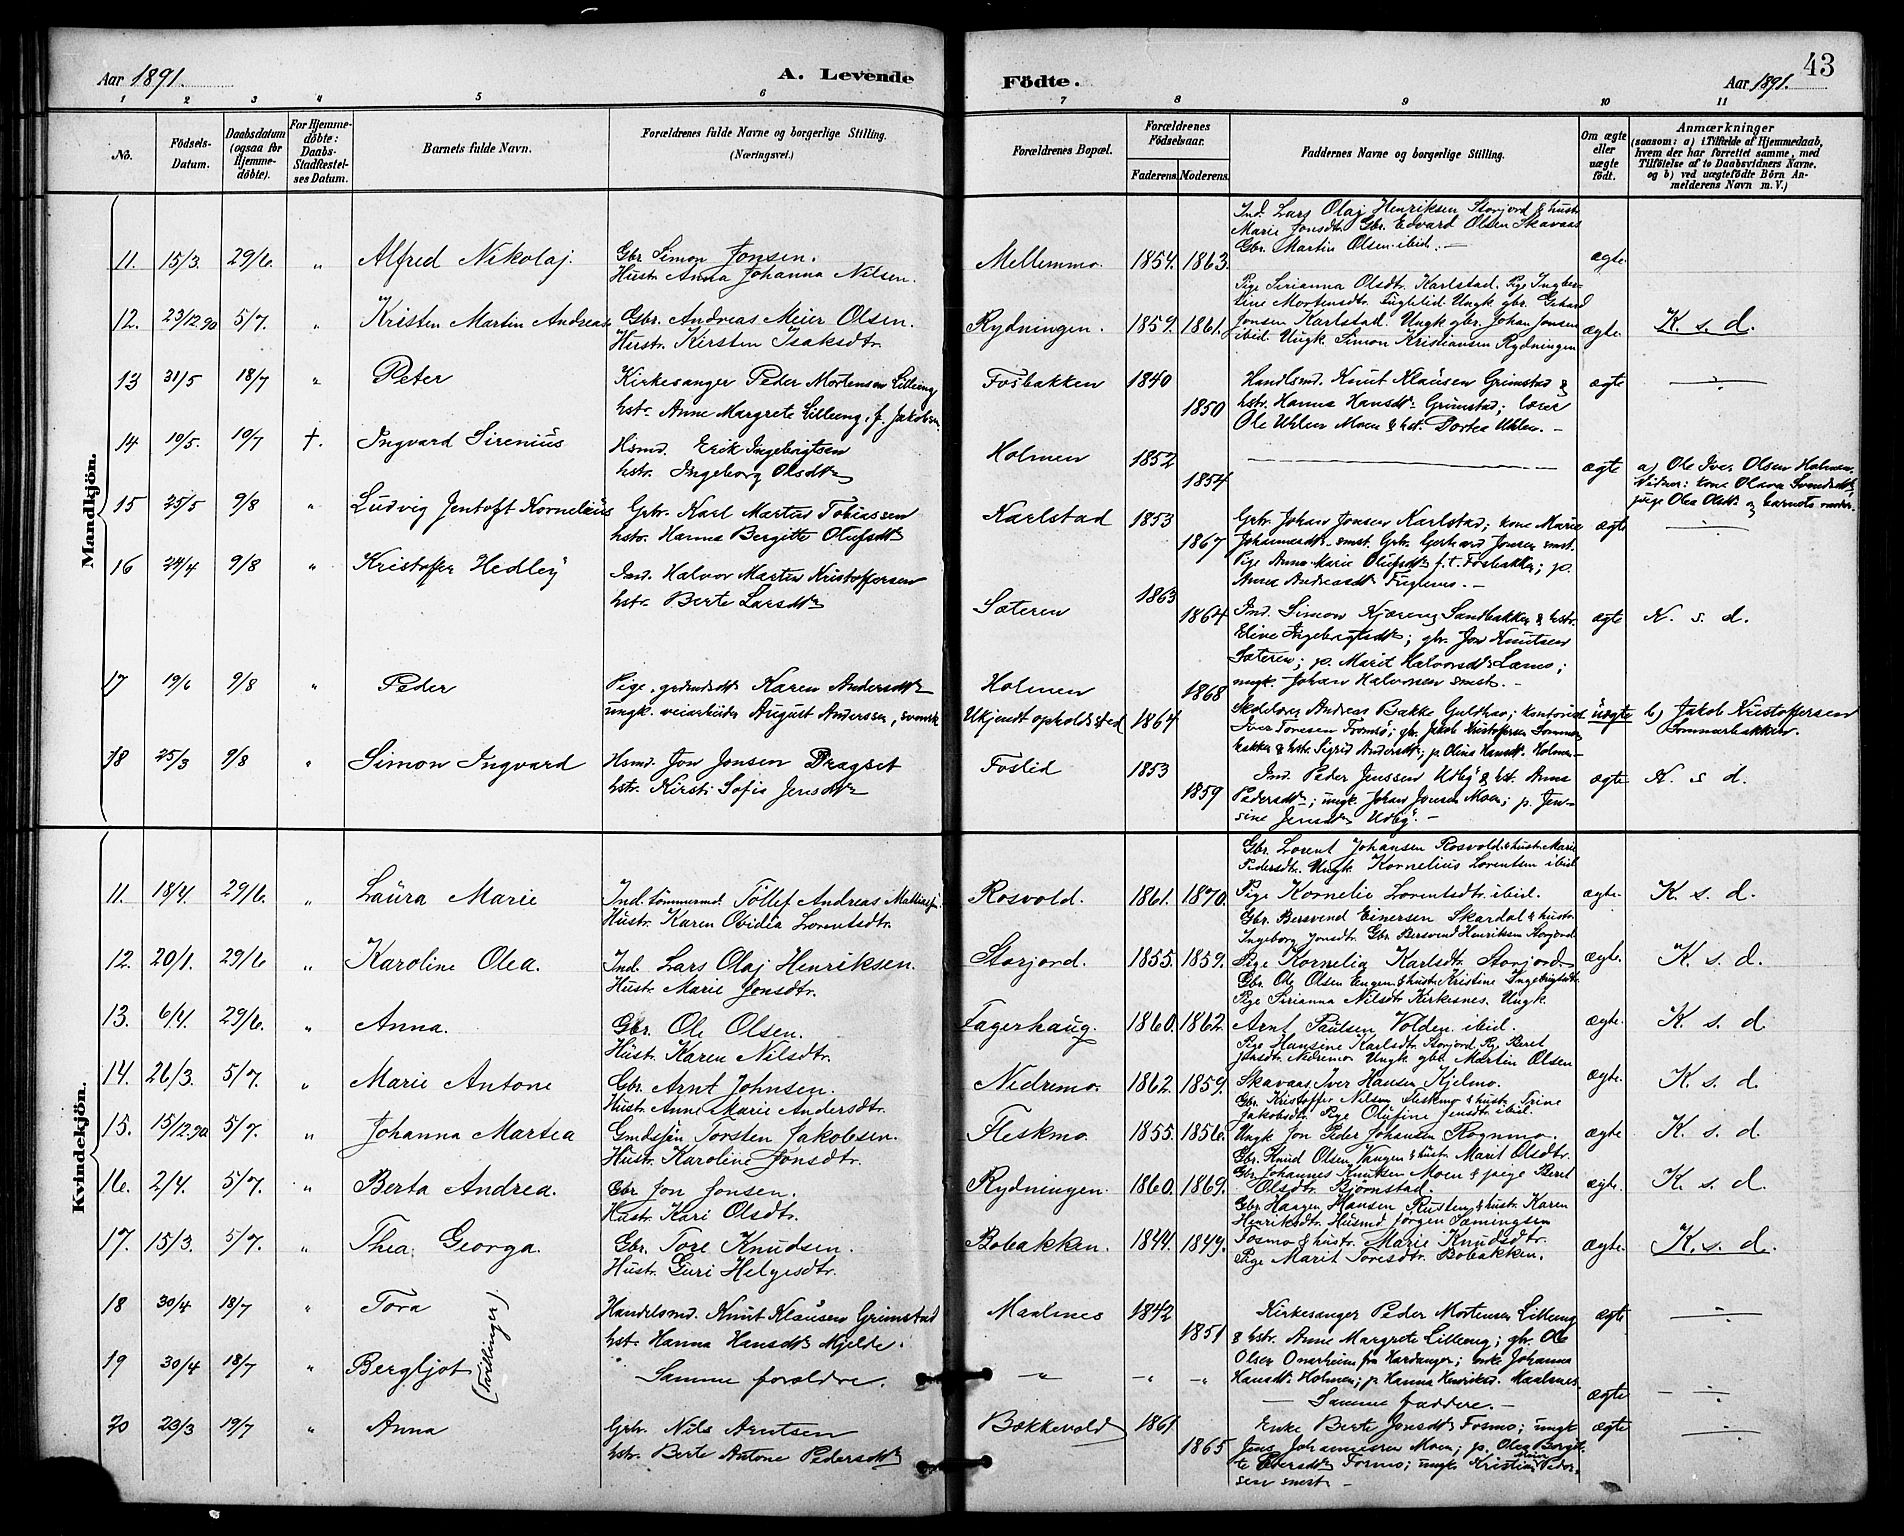 Aar 1891. A. Levende
1 2 3 4 5 6
No. Födsels-Datum. Daabsdatum (ogsaa for Hjemmedöbte). For Hjemmedöbte: Daabs-Stadfæstelses Datum. Barnets fulde Navn. Forældrenes fulde Navne og borgerlige Stilling. (Næringsvei.)
Mandkjön.
11. 15/3. 29/6. " Alfred Nikolaj. Gbr. Simon Jonsen.
Hustr. Anna Johanna Nilsen.
12. 23/12.90 5/7. " Kristen Martin Andreas. Gbr. Andreas Meier Olsen.
Hustr. Kirsten Isaksdtr.
13 31/5 18/7 " Peter Kirkesanger Peder Mortensen Lilleeng
hstr. Anne Margrete Lilleeng, f. Jakobsen
14 10/5. 19/7 †. Ingvard Sirenius Hsmd. Erik Ingebrigtsen
hstr. Ingeborg Olsdtr
15 25/5 9/8 " Ludvig Jentoft Kornelius Gbr. Karl Martin Tobiassen
hstr. Hanna Bergitte Olufsdtr
16 24/4 9/8 " Kristoffer Hedley Ind. Halvor Martin Kristoffersen
hstr. Berte Larsdtr
17 19/6 9/8 " Peder Pige, Karen Andersdtr
ungk. veiarbeider August Anderssen, svensk
18 25/3 9/8 " Simon Ingvard Hsmd. Jon Jonsen Dragset
hstr. Kirsti Sofie Jensdtr
Kvindekjön.
11. 18/4. 29/6. " Laura Marie Ind. tömmermd. Töllef Andreas
Hustr. Karen Ovidia Lorentsdtr.
12. 20/1. 29/6 " Karoline Olea. Ind. Lars Olaj Henriksen.
Hustr. Marie Jonsdtr.
13. 6/4. 29/6. " Anna. Gbr. Ole Olsen.
Hustr. Karen Nilsdtr.
14. 26/3. 5/7. " Marie Antone Gbr. Arnt Johnsen.
Hustr. Anne Marie Andersdtr.
15. 15/12.90. 5/7. " Johanna Martea Gmdsjön Torsten Jakobsen.
Hustr. Karoline Jonsdtr.
16. 2/4. 5/7. " Berta Andrea. Gbr Jon Jonsen.
Hustr. Kari Olsdtr.
17. 15/3. 5/7. " Thea Georga. Gbr. Tore Knudsen.
Hustr. Guri Helgesdtr.
18 30/4 18/7 " Tora (Tvillinger) Handelsmd. Knut Klausen Grimstad
hst. Hanna Hansdtr Mjelde.
19 30/4 18/7 " Bergljot Samme forældre.
20 23/3 19/7 " Anna Gbr. Nils Arntsen
hstr. Berte Antone Pedersdtr
Födte. Aar 1891. 43
7 8 9 10 11
Forældrenes Bopæl. Forældrenes Födselsaar. Faderens. Moderens. Faddernes Navne og borgerlige Stilling. Om ægte eller uægte födt. Anmærkninger (saasom: a) i Tilfælde af Hjemmedaab, hvem der har forrettet samme, med Tilföielse af to Daabsvidners Navne, og b) ved uægtefödte Börn Anmelderens Navn m. V.)
Ind. Lars Olaj Henriksen Storjord & hustr.
Marie Jonsdtr. Gbr. Edvard Olsen Skavaas
Gbr. Martin Olsen ibid. —
Mellemmo. 1854. 1863. ægte.
Pige Sirianna Olsdtr. Karlstad. Pige Ingbersine Mortensdtr. Fuglelid. Ungk. gbr. Gerhard
Rydningen. 1859. 1861. Jonsen Karlstad. Ungk gbr. Johan Jonsen ægte. K. s. d.
ibid. Ungk. Simon Kristiansen Rydningen
Fosbakken 1840 1850 Handlsmd. Knut Klausen Grimstad & ægte
hstr. Hanna Hansdtr Grimstad; lærer
Ole Uhlen Moen & hst. Dortea Uhlen. —
Holmen 1852 1854 ægte a) Ole Iver Olsen Holmen.
Vidner: kone Olava Svendsdtr,
pige Olea Olsdtr og barnets moder.
Karlstad 1853 1867 Gbr. Johan Jonsen Karlstad; kone Marie ægte
Johannesdtr smst. Gbr. Gerhard Jonsen smst.
Pige Anna Marie Olufsdtr f.t. Fosbakken; p.
Anna Andreasdtr Fuglenes. —
Sæteren 1863 1864 Ind. Simon Kjæreng Sandbakken & hstr. ægte K. s. d.
Eline Ingebrigtsdtr; gbr. Jon Knutsen
Sæteren; p. Marit Halvorsdtr Lanes;
ungk. Johan Halvorsen smst. —
Holmen 1868
Ukjendt opholdssted 1864 Skolelærer Andreas Bakke Guldhav; kontorist uægte b) Jakob Kristoffersen
Iver Toresen Tromsö; gbr. Jakob Kristoffersen Sommer- Sommerbakken.
bakken & hstr. Sigrid Andersdtr; p. Olina Hansdtr Holmen
Foslid 1853 1859 Ind. Peder Jenssen Udby & hst. Anna ægte K s d.
Pedersdtr; ungk. Johan Jonsen Moen; p. Jensine Jensdtr Udby. —
Gbr. Lorent Johansen Rosvold & hustr. Marie
Pedersdtr. Ungk Kornelius Lorentsen ibid
Rosvold. 1861. 1870. Pige Kornelie Lorentsdtr. ibid. ægte. K s. d.
Gbr. Bersvend Einersen Skardal & hustr.
Ingeborg Jonsdtr. Gbr Bersvend Henriksen Storjord
Storjord. 1855. 1859. Pige Kornelia Karlsdtr. Storjord ægte. K. s. d.
Gbr. Ole Olsen Engen & hustr. Kristine Ingebrigtsdtr.
Pige Sirianna Nilsdtr Kirkesnes. Ungk
Fagerhaug. 1860. 1862. Arnt Paulsen Volden ibid. ægte. K s. d
Pige Hansine Karlsdtr. Storjord. Pg. Beret
Jonsdtr. Nedremo Ungk gbr. Martin Olsen
Nedremo. 1862. 1859. Skavaas, Iver Hansen Kjelmo. ægte. K s. d
Gbr. Kristoffer Nilsen Fleskmo & hustr. Trine
Jakobsdtr. Pige Olufine Jensdtr ibid.
Fleskmo. 1855. 1856. Ungk Jon Peder Johansen Rognmo. ægte K s. d.
Gbr. Knud Olsen Vangen & hustr. Marit Olsdtr.
Gbr. Johannes Knutsen Moen & pige Beret
Rydningen. 1860. 1869. Olsdtr. Bjørnstad. ægte. K. s. d
Gbr. Haagen Hansen Rusteng & hustr. Karen
Henriksdtr. Husmd Jörgen Sæmingsen
Bobakken. 1844. 1849. Fosmo & hustr. Marie Knudsdtr. ægte. K. s. d.
Pige Marit Toresdtr. Bobakken.
Maalsnes 1842 1851 Kirkesanger Peder Mortensen Lilleeng ægte
& hstr. Anne Margrete Lilleeng; gbr. Ole
Olsen Onarheim fra Hardanger; enke Johanna
Hansdtr Holmen; p. Hanna Henriksd. Maalsnes.
" " " — Samme faddere. — ægte
Bækkevold 1861 1865 Enke Berte Jonsdtr Fosmo; ungk ægte
Jens Johannessen Moen; p. Olea Bergitte Pedersdtr Formo; ungk. Kristian Pedersen smst —